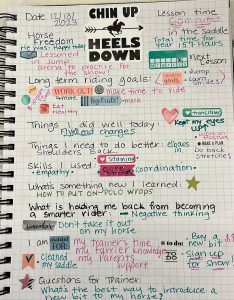 Date 12/13/2023
CHIN UP
HEELS DOWN
Lesson time
in the saddle
Total time for year 157 Hours
Horse
Freedom
He was: Happy today
Lesson: in Jump arena to practice for the show!
next lesson
Jump
Long term riding goals:
WORK OUT!
make time to ride
Eat Healthy
hydrate more
Things I did well today:
Flying lead changes
transitions
Kept my eyes up!
Things I need to do better: elbows
Shoulders Back
MAKE A PLAN
Do back stretches
Skills I used:
empathy
stamina
core strength
coordination
What's something new I learned:
HOW TO PUT ON POLO WRAPS
What is holding me back from becoming a smarter rider: Negative thinking
remember
Don't take it out on my horse
I am grateful FOR:
my trainer's time
my farrier knowledge
my Parents support
cleaned my saddle
to do:
Buy a new bit $$
Sign up for show!
Questions for Trainer
Whats the best way to introduce a new bit to my horse?